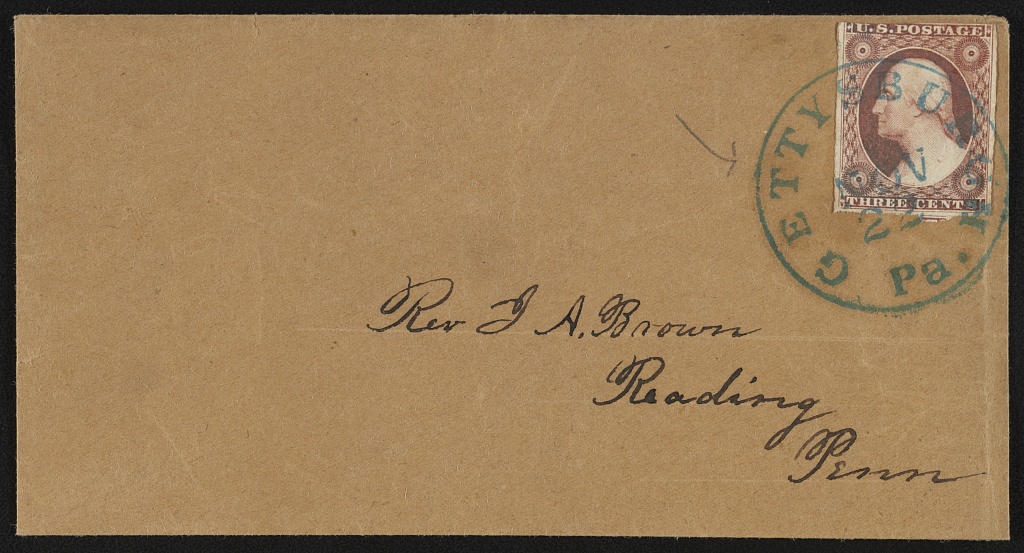 U.S. POSTAGE
THREE CENTS
GETTYSBURG Pa.
JUN
22
Rev J A. Brown
Reading
Penn